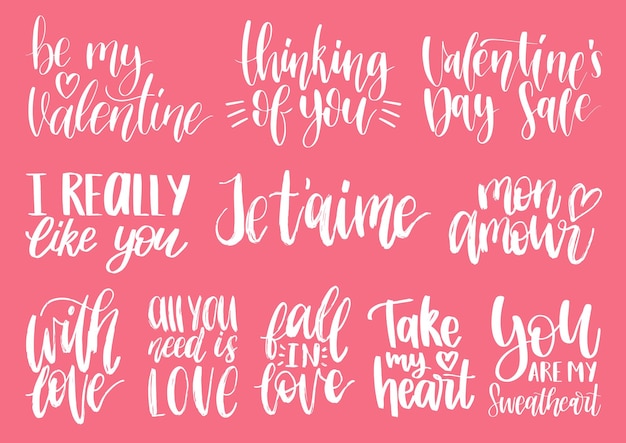 be my
Valentine
thinking
of you
Valentine's
Day Sale
I REALLY
like you
Je t'aime
mon
amour
with
love
all you
need is
LOVE
fall
IN
love
Take
my
heart
You
ARE MY
Sweetheart